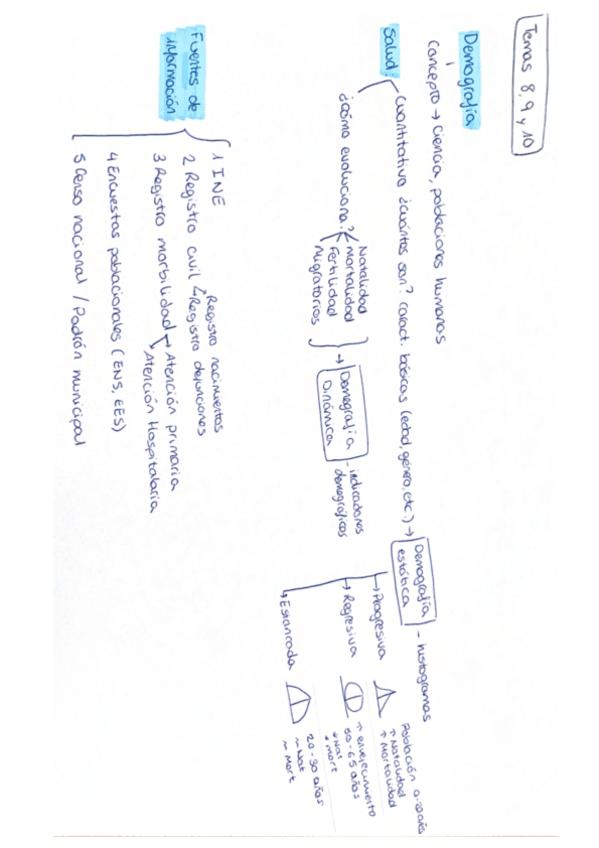 Temas 8, 9 y 10
Demografía
Concepto → Ciencia, poblaciones humanas
Salud:
Cuantitativa ¿cuántos son? caract. básicas (edad, género, etc.) → Demografía estática - histogramas
Población 0-20 años
→ Progresiva ↑ Natalidad
↑ Mortalidad
→ Regresiva ↑ envejecimiento
50-65 años
↓ Nat
↓ mort
→ Estancada 20-30 años
~ Nat
~ Mort
¿cómo evoluciona?
Natalidad
Mortalidad
Fertilidad
Migratorios
→ Demografía Dinámica - indicadores demográficos
Fuentes de información
1 INE
2 Registro civil
Registro nacimientos
Registro defunciones
3 Registro morbilidad
Atención primaria
Atención Hospitalaria
4 Encuestas poblacionales (ENS, EES)
5 Censo nacional / Padrón municipal